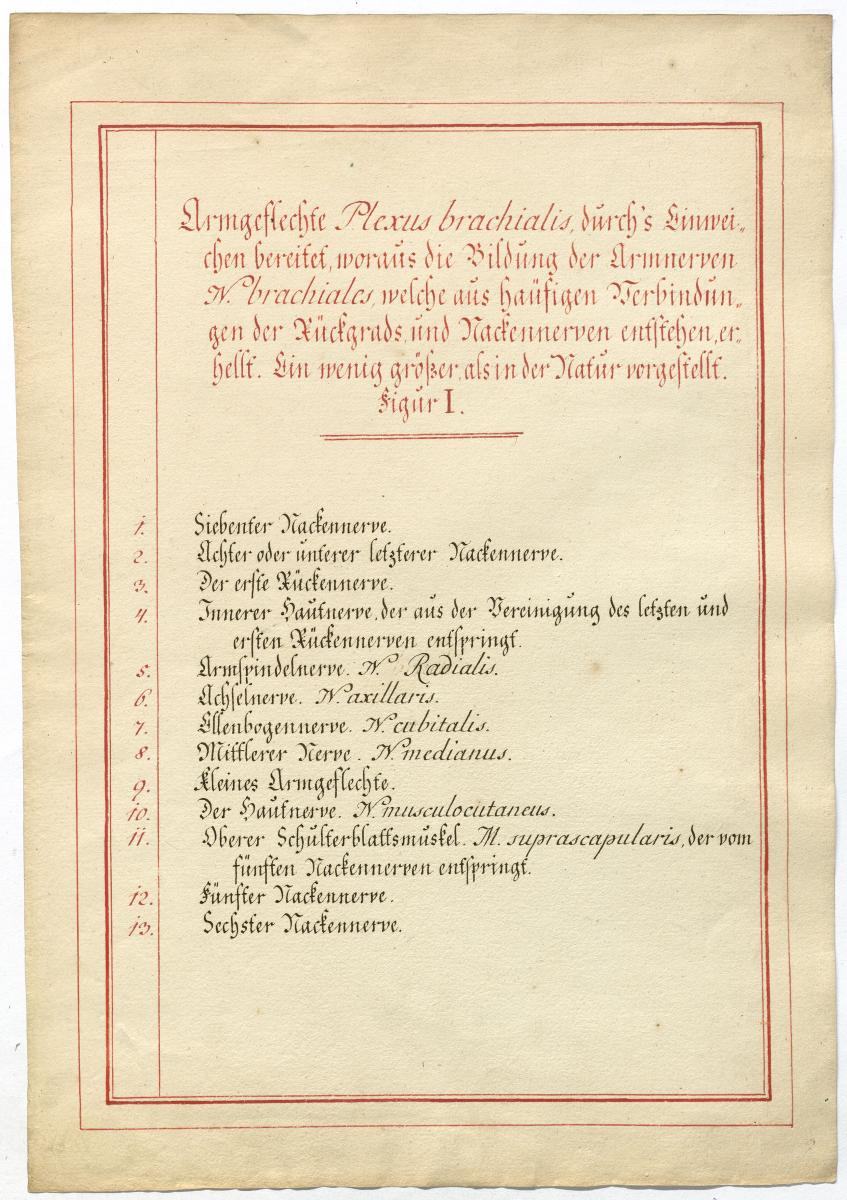 Armgeflechte Plexus brachialis, durch's Einwei„
chen bereitet, woraus die Bildung der Armnerven
N. brachiales, welche aus häufigen Verbindun„
gen der Rückgrads, und Nackennerven entstehen, er„
hellt. Ein wenig größer, als in der Natur vorgestellt.
Figur I.
1. Siebenter Nackennerve.
2. Achter oder unterer letzterer Nackennerve.
3. Der erste Rückennerve.
4. Innerer Hautnerve, der aus der Vereinigung des letzten und
ersten Rückennerven entspringt.
5. Armspindelnerve. N. Radialis.
6. Achselnerve. N. axillaris.
7. Ellenbogennerve. N. cubitalis.
8. Mittlerer Nerve. N. medianus.
9. Kleines Armgeflechte.
10. Der Hautnerve. N. musculocutaneus.
11. Oberer Schulterblattsmuskel. M. suprascapularis, der vom
fünften Nackennerven entspringt.
12. Fünfter Nackennerve.
13. Sechster Nackennerve.